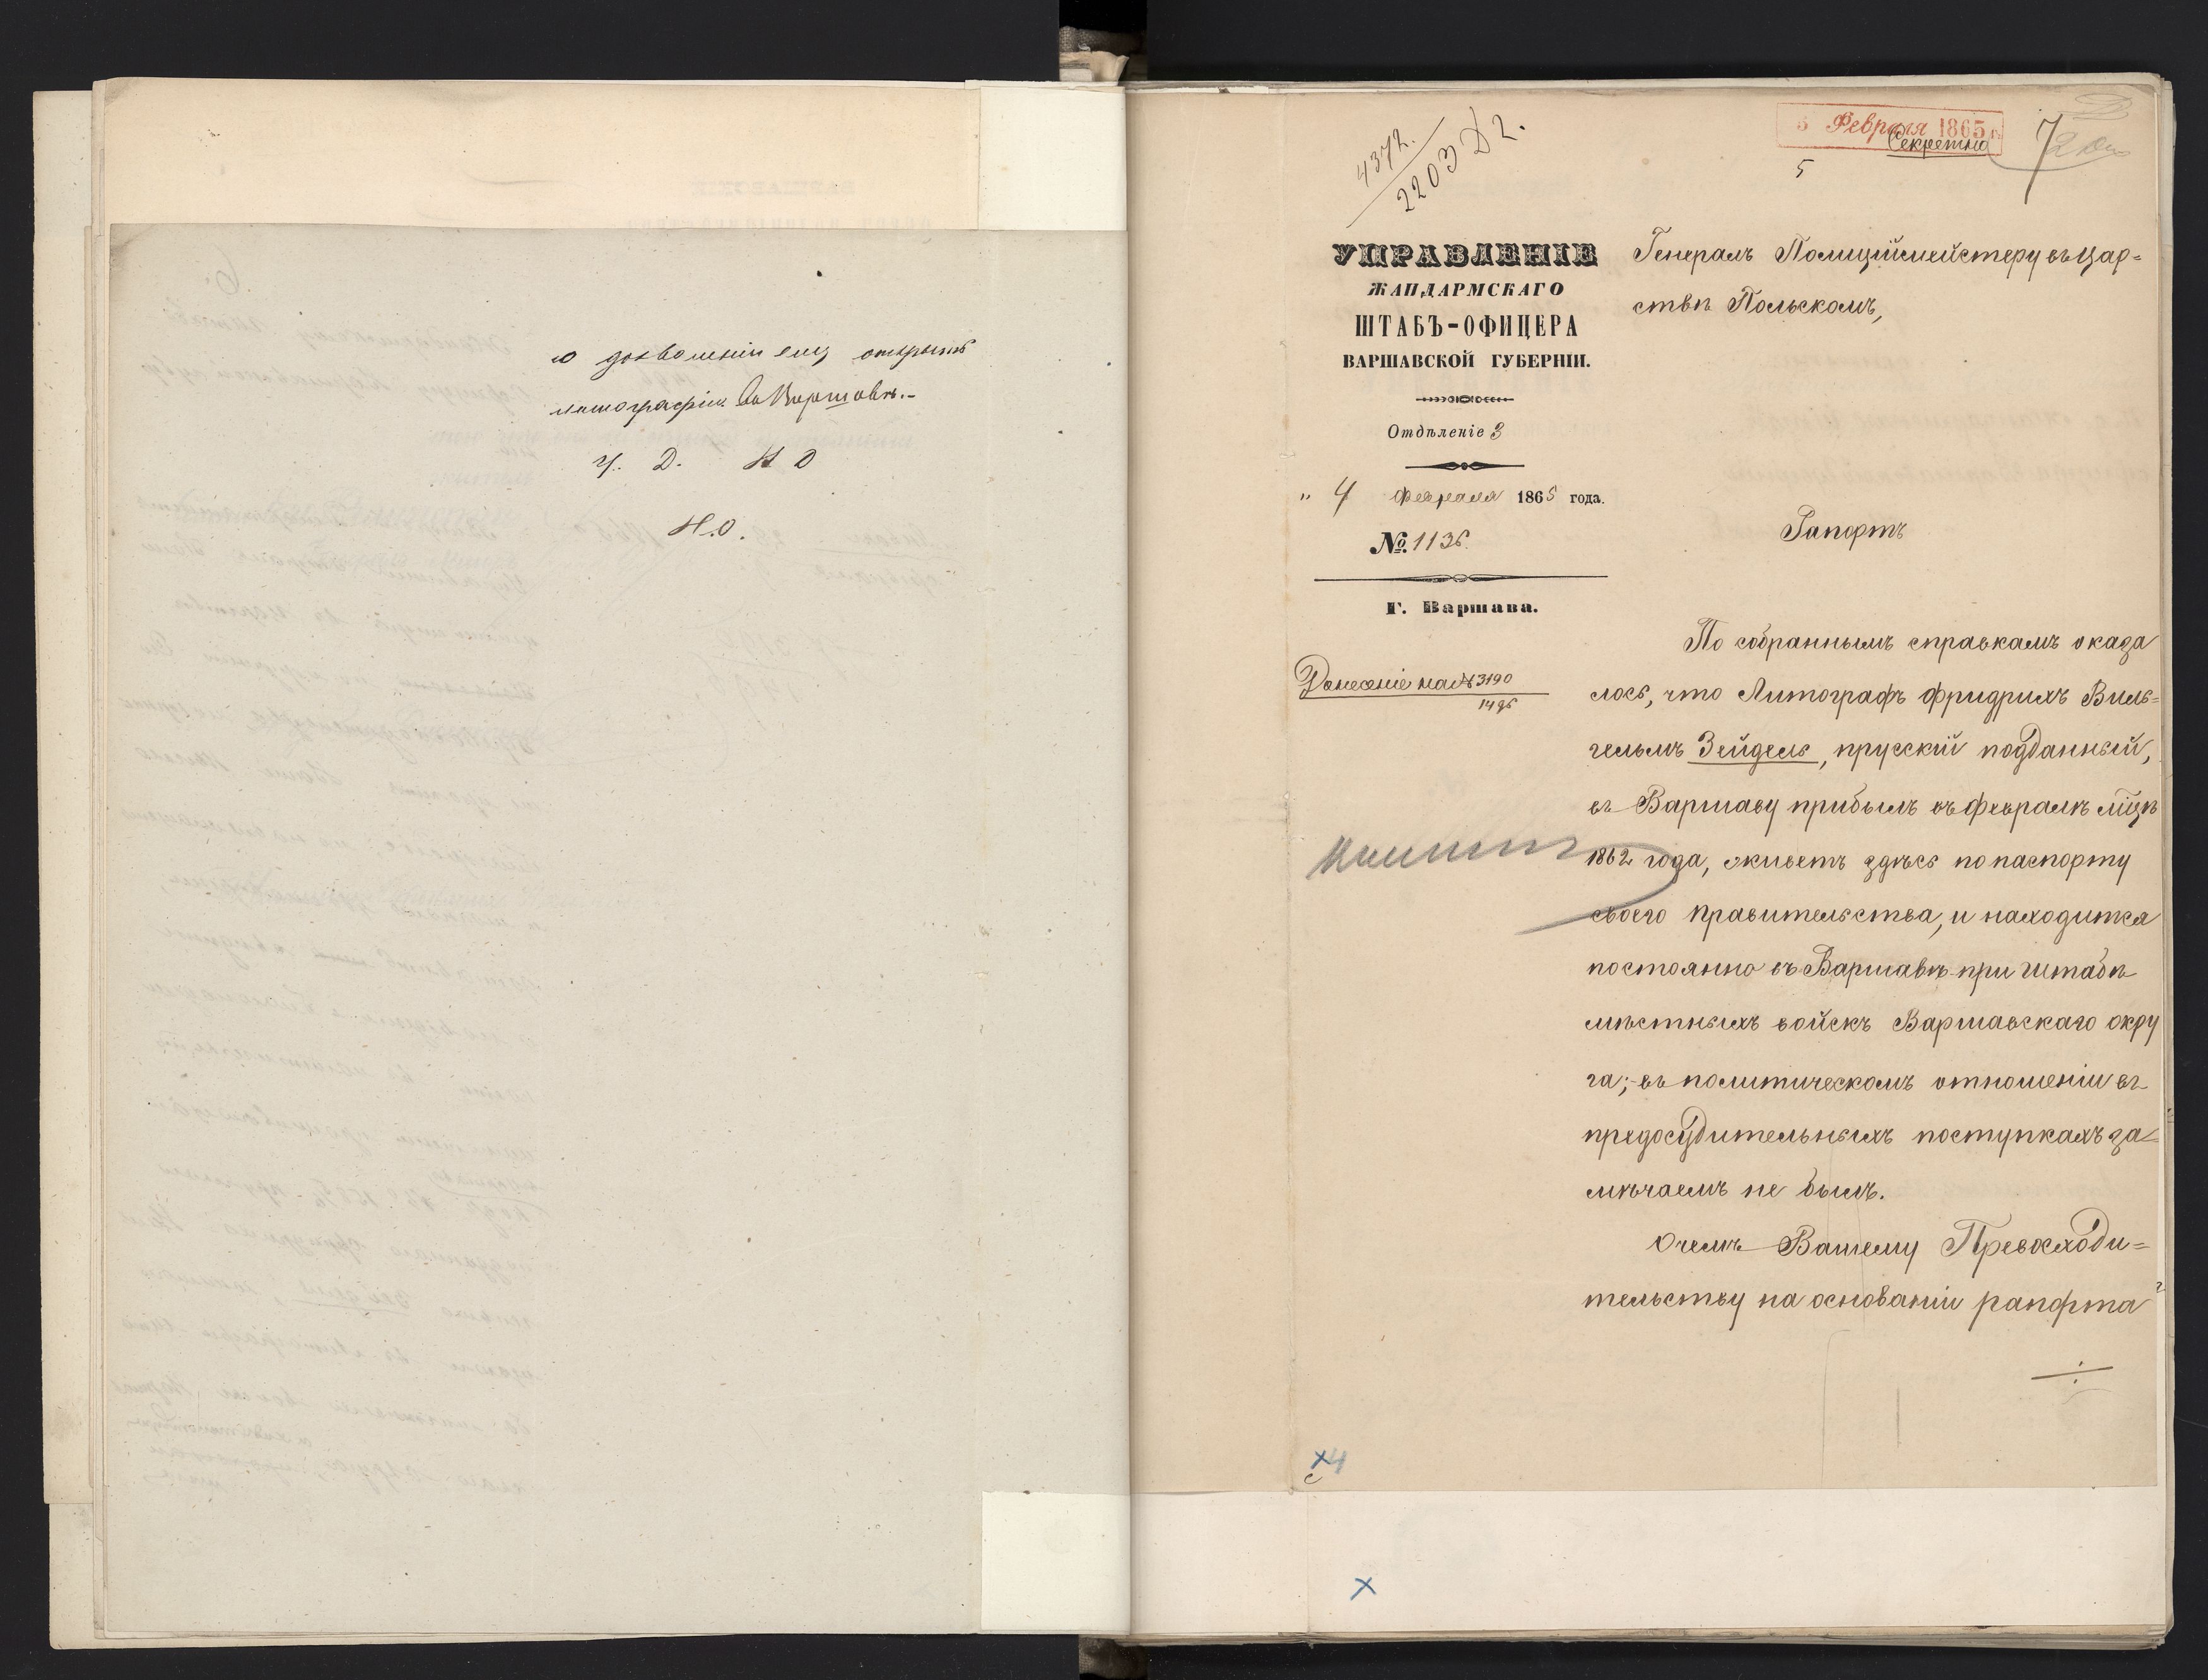 о дозволеніи ему открыть
литографію въ Варшавѣ.-
Ч. Д. Н О
Н.О.
4372.
2203 Д2.
5 Февраля 1865 г.
Секретно
7
5
УПРАВЛЕНІЕ
ЖАНДАРМСКАГО
ШТАБЪ-ОФИЦЕРА
ВАРШАВСКОЙ ГУБЕРНІИ.
Отдѣленіе 3
„ 4 Февраля 1865 года.
№ 1136.
Г. Варшава.
Донесеніе на № 3190
Генералъ Полиціймейстеру въ Цар=
ствѣ Польскомъ,
Рапортъ
По собраннымъ справкамъ оказа
лось, что Литографъ Фридрихъ Виль=
гельмъ Зейдель, прусскій подданный,
въ Варшаву прибылъ въ Февралѣ мцѣ
1862 года, живетъ здѣсь по паспорту
своего правительства, и находится
постоянно въ Варшавѣ при штабѣ
мѣстныхъ войскъ Варшавскаго окру
га; въ политическомъ отношеніи въ
предосудительныхъ поступкахъ за=
мѣчаемъ не былъ.
О чемъ Вашему Превосходи=
тельству на основаніи рапорта
х4
х